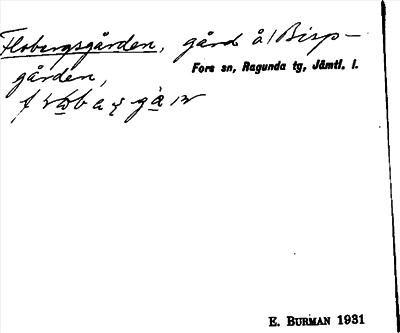 Flobergsgården, gård å Bisp-
gården,
Fors sn, Ragunda tg, Jämtl. l.
E. BURMAN 1931